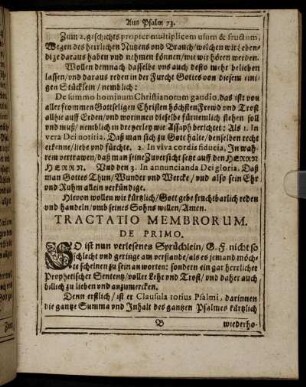 Aus Psalm 73.
Zum 2. geschichts propter multiplicem usum & fructum.
Wegen des herrlichen Nutzens und Brauch/welchen wir leben/
dige daraus haben und nehmen können/wie wir hören werden.
Wollen demnach dasselbe uns auch desto mehr belieben
lassen/und daraus reden in der Furcht Gottes von diesem eini-
gen Stücklein/nemblich:
De summo hominum Christianorum gaudio, das ist von
aller frommen Gottseligen Christen höchsten Freud und Trost
allhie auff Erden/und worinnen dieselbe fürnemlich stehen soll
und muß/nemblich in dreyerley wie Assaph berichtet: Als 1. In
vera Dei notitia. Daß man sich zu Gott halte/denselben recht
erkenne/liebe und fürchte. 2. In viva cordis fiducia, In wah-
rem vertrawen/daß man seine Zuversicht setze auff den HERRN
HERRN. Und den 3. In annuncianda Dei gloria. Daß
man Gottes Thun/Wunder und Wercke/und also sein Ehr
und Ruhm allein verkündige.
Hievon wollen wir kürtzlich/Gott gebe fruchtbarlich reden
und handeln/umb seines Sohns willen/Amen.
TRACTATIO MEMBRORUM.
DE PRIMO.
SO ist nun verlesenes Sprüchlein/G. F. nicht so
schlecht und geringe am verstande/als es jemand möch-
te scheinen zu sein an worten: sondern ein gar herrlicher
Prophetischer Sentenz/voller Lehr und Trost/und daher auch
billich zu lieben und anzumercken.
Denn erstlich/ist es Clausula totius Psalmi, darinnen
die gantze Summa und Inhalt des gantzen Psalmes kürtzlich
B wiederho-